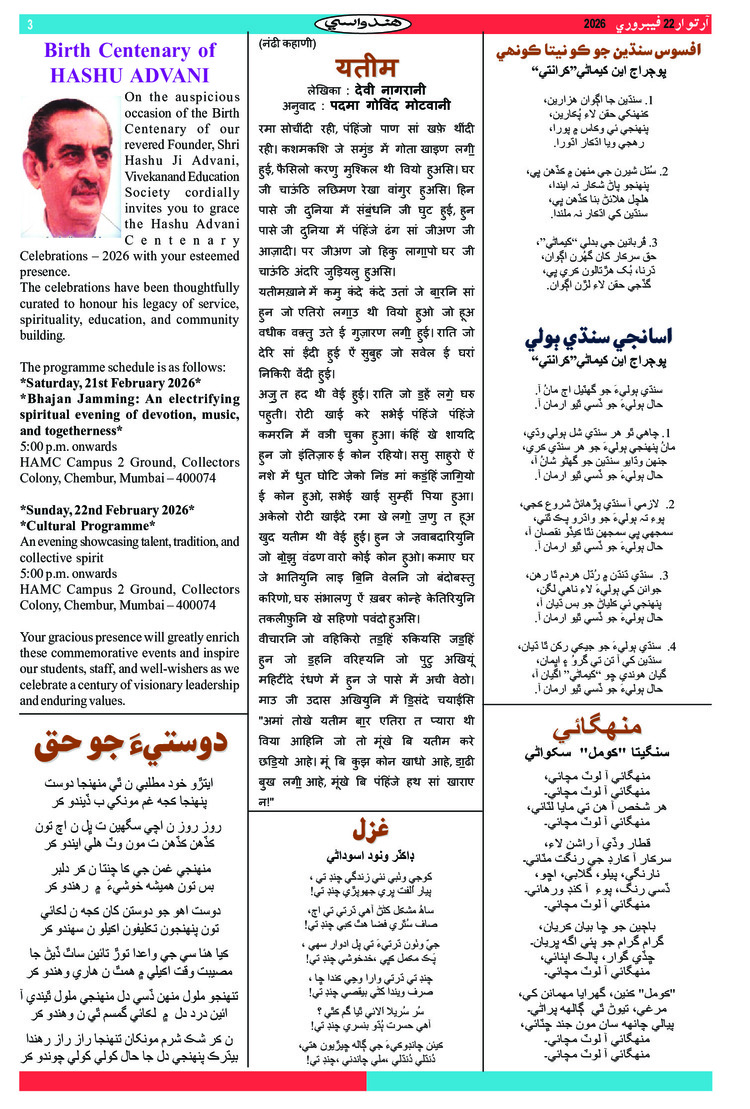 3
هندواسي
آرتوار 22 فيبروري 2026
Birth Centenary of
HASHU ADVANI
On the auspicious
occasion of the Birth
Centenary of our
revered Founder, Shri
Hashu Ji Advani,
Vivekanand Education
Society cordially
invites you to grace
the Hashu Advani
Centenary
Celebrations – 2026 with your esteemed
presence.
The celebrations have been thoughtfully
curated to honour his legacy of service,
spirituality, education, and community
building.
The programme schedule is as follows:
*Saturday, 21st February 2026*
*Bhajan Jamming: An electrifying
spiritual evening of devotion, music,
and togetherness*
5:00 p.m. onwards
HAMC Campus 2 Ground, Collectors
Colony, Chembur, Mumbai – 400074
*Sunday, 22nd February 2026*
*Cultural Programme*
An evening showcasing talent, tradition, and
collective spirit
5:00 p.m. onwards
HAMC Campus 2 Ground, Collectors
Colony, Chembur, Mumbai – 400074
Your gracious presence will greatly enrich
these commemorative events and inspire
our students, staff, and well-wishers as we
celebrate a century of visionary leadership
and enduring values.
دوستيءَ جو حق
ايترو خود مطلبي ن ٿي منهنجا دوست
پنهنجا کجه غم مونکي ب ڏيندو ڪر
روز روز ن اچي سگهين ت ڀل ن اچ تون
ڪڏهن ڪڏهن ت مون وٽ هلي ايندو ڪر
منهنجي غمن جي ڪا چنتا ن ڪر دلبر
بس تون هميشه خوشيءَ ۾ رهندو ڪر
دوست اهو جو دوستن کان کجه ن لڪائي
تون پنهنجون تڪليفون اڪيلو ن سهندو ڪر
ڪيا هئا سي جي واعدا توڙ تائين ساٿ ڏيڻ جا
مصيبت وقت اڪيلي ۾ همٿ ن هاري وهندو ڪر
تنهنجو ملول منهن ڏسي دل منهنجي ملول ٿيندي آ
ائين درد دل ۾ لڪائي گمسم ٿي ن وهندو ڪر
ن ڪر شڪ شرم مونکان تنهنجا راز راز رهندا
بيڌڙڪ پنهنجي دل جا حال کولي کولي چوندو ڪر
(नंढी कहाणी)
यतीम
लेखिका : देवी नागरानी
अनुवाद : पदमा गोविंद मोटवानी
रमा सोचींदी रही, पंहिंजो पाण सां खफ़े थींदी
रही। कशमकशि जे समुंड में गोता खाइण लगी
हुई, फ़ैसिलो करणु मुश्किल थी वियो हुअसि। घर
जी चाउंठि लछिमण रेखा वांगुर हुअसि। हिन
पासे जी दुनिया में संबुंधनि जी घुट हुई, हुन
पासे जी दुनिया में पंहिंजे ढंग सां जीअण जी
आज़ादी। पर जीअण जो हिकु लागा॒पो घर जी
चाउंठि अंदरि जुड़ियलु हुअसि।
यतीमख़ाने में कमु कंदे कंदे उतां जे बा॒रनि सां
हुन जो एतिरो लगा॒उ थी वियो हुओ जो हूअ
वधीक वक़्तु उते ई गुज़ारण लगी॒ हुई। राति जो
देरि सां ईंदी हुई ऐं सुबुह जो सवेल ई घरां
निकिरी वेंदी हुई।
अजु॒ त हद थी वेई हुई। राति जो ड॒हें लगे॒ घरु
पहुती। रोटी खाई करे सभेई पंहिंजे पंहिंजे
कमरनि में वञी चुका हुआ। कंहिं खे शायदि
हुन जो इंतिज़ारु ई कोन रहियो। ससु साहुरो ऐं
नशे में धुत घोटि जेको निंड मां कडंहिं जागि॒यो
ई कोन हुओ, सभेई खाई सुम्हीं पिया हुआ।
अकेलो रोटी खाईंदे रमा खे लगो॒ ज॒णु त हूअ
खुद यतीम थी वेई हुई। हुन जे जवाबदारियुनि
जो बो॒झु वंढण वारो कोई कोन हुओ। कमाए घर
जे भातियुनि लाइ बि॒नि वेलनि जो बंदोबस्तु
करिणो, घरु संभालणु ऐं ख़बर कोन्हे केतिरियुनि
तकलीफ़ुनि खे सहिणो पवंदो हुअसि।
वीचारनि जो वहिकिरो तड॒हिं रुकियसि जड॒हिं
हुन जो ड॒हनि वरिह्यनि जो पुटु अखियूं
महिटींदे रंधणे में हुन जे पासे में अची वेठो।
माउ जी उदास अखियुनि में डि॒संदे चयाईसि
"अमां तोखे यतीम बा॒र एतिरा त प्यारा थी
विया आहिनि जो तो मूंखे बि यतीम करे
छडि॒यो आहे। मूं बि कुझ कोन खाधो आहे, डा॒ढी
बुख लगी॒ आहे, मूंखे बि पंहिंजे हथ सां खाराए
न!"
غزل
ڊاڪٽر ونود اسوداڻي
ڪوجي ولبي نئي زندگي چنڊ تي،
پيار الفت ڀري جهوپڙي چنڊ تي!
ساهُ مشڪل کڻڻ آهي ڌرتي تي اڄ،
صاف سٿري فضا هٿ ڪبي چنڊ تي!
جيءُ وٺون ڌرتيءَ تي پل ادوار سهي،
پڪ مڪمل ڪٿي، خدخوشي چنڊ تي!
چنڊ تي ڌرتي وارا وڃي ڪندا ڇا،
صرف ويندا کڻي بيقصي چنڊ تي!
سُر سريلا الائي ٿيا گم ڪٿي؟
آهي حسرت ٻُڌو بنسري چنڊ تي!
ڪيئن چانڊوڪيءَ جي ڳالهه ڇيڙيون هتي،
ڌنڌلي ڌنڌلي، ملي چاندني، چنڊ تي!
افسوس سنڌين جو ڪو نيتا ڪونهي
ڀوڄراج اين ڪيماڻي”ڪرانتي“
1. سنڌين جا اڳواڻ هزارين،
ڪنهنکي حقن لاءِ پُڪارين،
پنهنجي ئي وڪاس ۾ پورا،
رهجي ويا اڌڪار اڌورا.
2. سُتل شيرن جي منهن ۾ ڪڏهن ڀي،
پنهنجو پاڻ شڪار نہ ايندا،
هلچل هلائڻ بنا ڪڏهن ڀي،
سنڌين کي اڌڪار نہ ملندا.
3. قُربانين جي بدلي ”ڪيماڻي“،
حق سرڪار کان گهُرن اڳواڻ،
ڌرنا، بُک هڙتالون ڪري ڀي،
گڏجي حقن لاءِ لڙن اڳواڻ.
اسانجي سنڌي ٻولي
ڀوڄراج اين ڪيماڻي”ڪرانتي“
سنڌي ٻوليءَ جو گهٽيل اڄ مانُ آ.
حال ٻوليءَ جو ڏسي ٿيو ارمان آ.
1. چاهي ٿو هر سنڌي شل ٻولي وڌي،
مانُ پنهنجي ٻوليءَ جو هر سنڌي ڪري،
جنهن وڌايو سنڌين جو گهڻو شانُ آ،
حال ٻوليءَ جو ڏسي ٿيو ارمان آ.
2. لازمي آ سنڌي پڙهائڻ شروع ڪجي،
پوءِ تہ ٻوليءَ جو واڌرو پڪ ٿئي،
سمجهي ڀي سمجهن نٿا ڪيڏو نقصان آ،
حال ٻوليءَ جو ڏسي ٿيو ارمان آ.
3. سنڌي ڌنڌن ۾ رُڌل هردم ٿا رهن،
جوانن کي ٻوليءَ لاءِ ناهي لگن،
پنهنجي ئي ڪلياڻ جو بس ڌيان آ،
حال ٻوليءَ جو ڏسي ٿيو ارمان آ.
4. سنڌي ٻوليءَ جو جيڪي رکن ٿا ڌيان،
سنڌين کي آ تن تي گروُ ۽ ايمان،
گيان هوندي جو ”ڪيماڻي“ اڳيان آ،
حال ٻوليءَ جو ڏسي ٿيو ارمان آ.
منهگائي
سنگيتا "ڪومل" سڪواڻي
منهگائي آ لوٽ مچائي،
منهگائي آ لوٽ مچائي۔
هر شخص آ هن تي مايا لٽائي،
منهگائي آ لوٽ مچائي۔
قطار وڏي آ راشن لاءِ،
سرڪار آ ڪارڊ جي رنگت مٽائي۔
نارنگي، پيلو، گلابي، اڇو،
ڏسي رنگ، پوءِ آ کنڊ ورهائي۔
منهگائي آ لوٽ مچائي۔
ڀاڄين جو ڇا بيان ڪريان،
گرام گرام جو پئي اگه پريان۔
ڇڏي گوار، پالڪ اپنائي،
منهگائي آ لوٽ مچائي۔
"ڪومل" کٽين، گهرايا مهمانن کي،
مرغي، تيوڻ ٿي ڳالهه پراڻي۔
پيالي چانهه سان مون جند ڇٽائي،
منهگائي آ لوٽ مچائي۔
منهگائي آ لوٽ مچائي۔